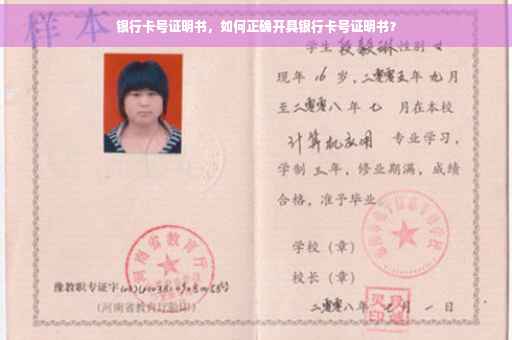 样本
银行卡号证明书，如何正确开具银行卡号证明书？
学生 段毅琳 性别 女
现年 16 岁，二零零五年 九 月
至二零零八年 七 月在本校
计算机应用 专业学习，
学制 三 年，修业期满，成绩
合格，准予毕业。
学校（章）
校长（章）
二零零八年 七 月 一 日
河南省教育厅
豫教职专证字
（河南省教育厅验印）